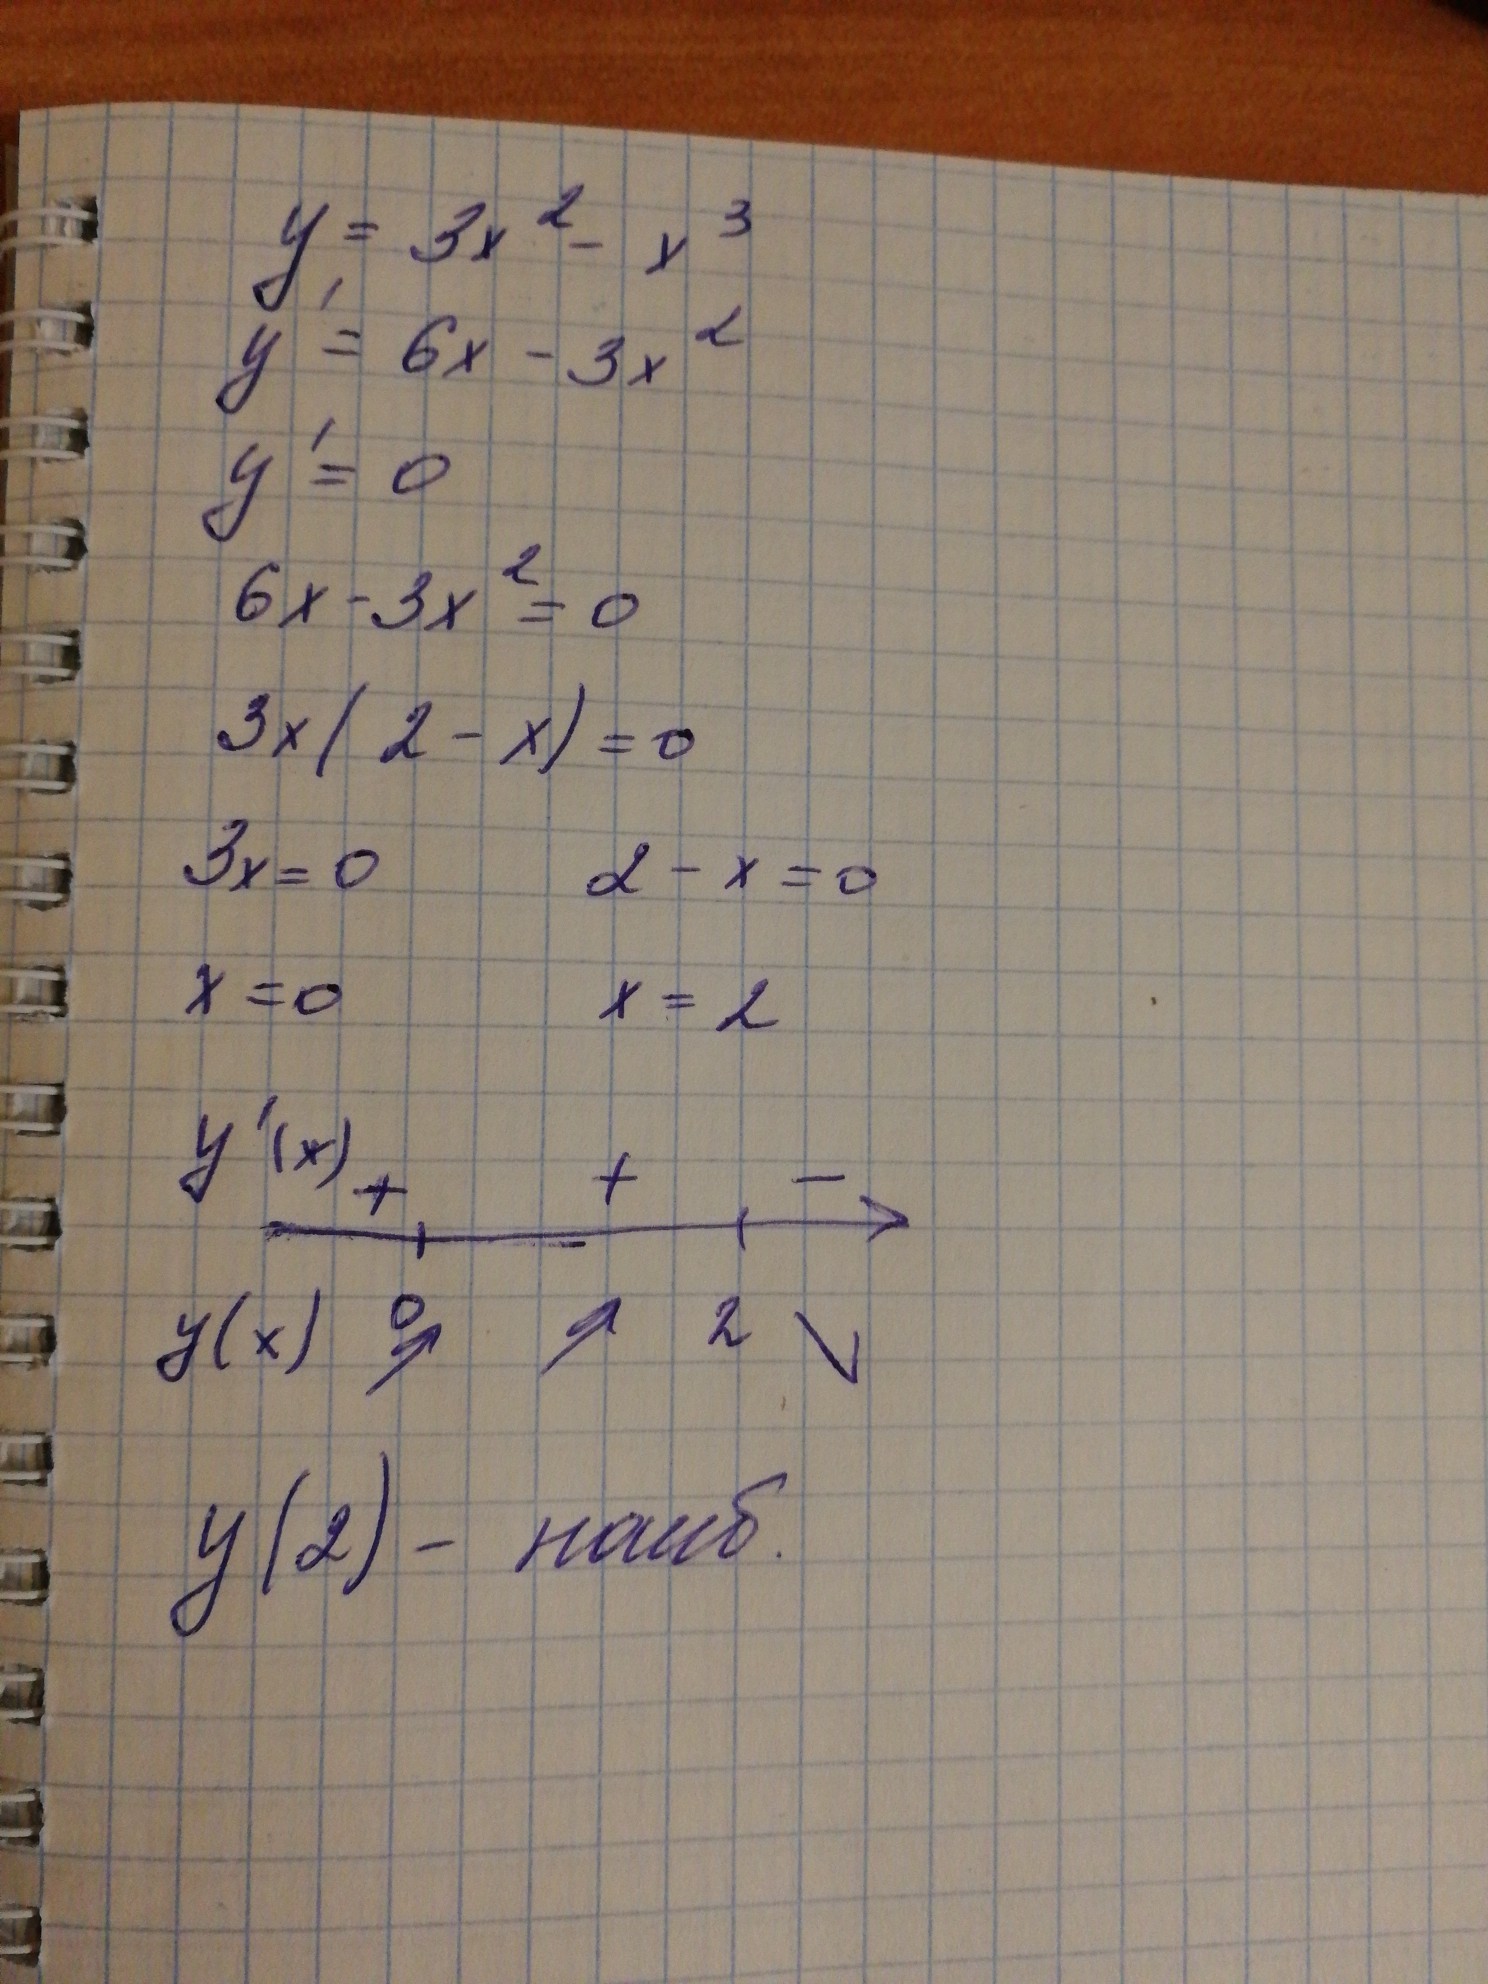 y = 3x² - x³
y' = 6x - 3x²
y' = 0
6x - 3x² = 0
3x(2 - x) = 0
3x = 0 2 - x = 0
x = 0 x = 2
y'(x) + + -
y(x) 0 ↗ ↗ 2 ↘
y(2) - наиб.